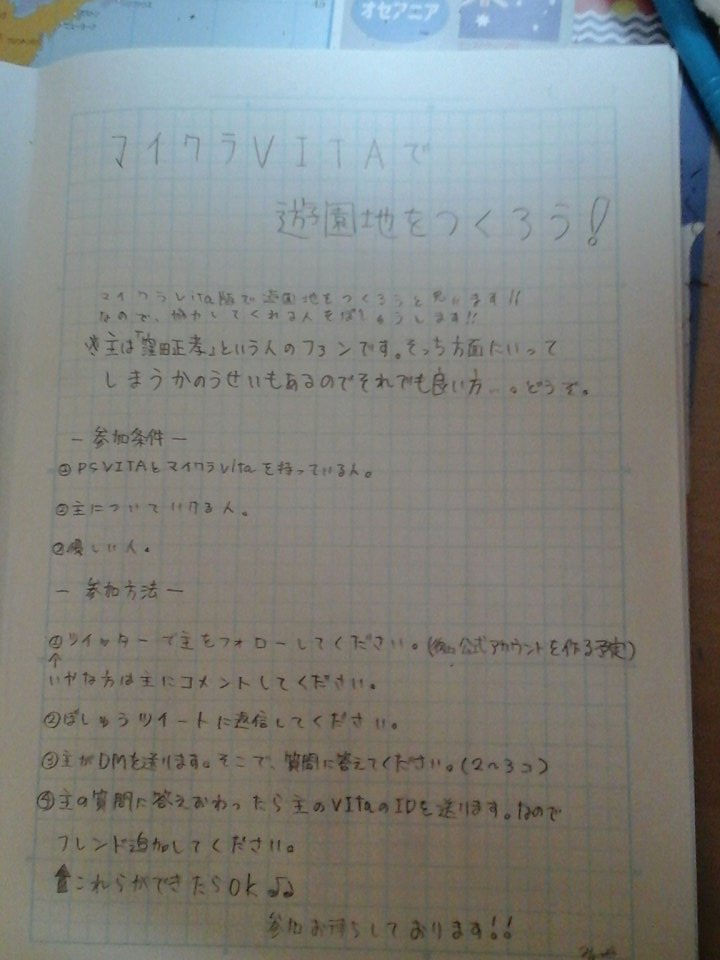 オセアニア
マイクラVITAで
遊園地をつくろう!
マイクラVita版で遊園地をつくろうと思います!!
なので、協力してくれる人をぼしゅうします!!
※主は「窪田正孝」という人のファンです。そっち方面にいって
しまうかのうせいもあるのでそれでも良い方…。どうぞ。
ー参加条件ー
①PSVITAとマイクラVitaを持っている人。
②主についていける人。
③優しい人。
ー参加方法ー
①ツイッターで主をフォローしてください。(公式アカウントを作る予定)
↑
いやな方は主にコメントしてください。
②ぼしゅうツイートに返信してください。
③主がDMを送ります。そこで、質問に答えてください。(2〜3コ)
④主の質問に答えおわったら主のVItaのIDを送ります。なので
フレンド追加してください。
⬆これらができたらOK♫
参加お待ちしております!!